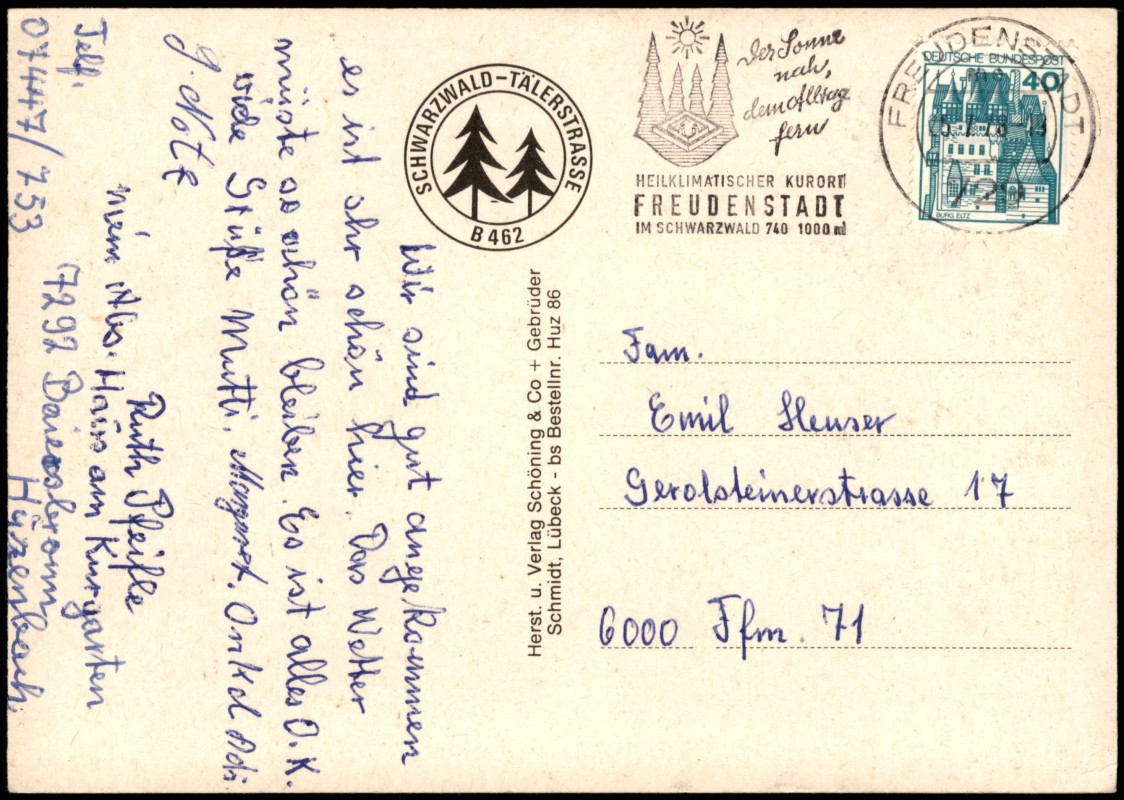 Wir sind gut angekommen
es ist sehr schön hier. Das Wetter
müste so schön bleiben. Es ist alles O.K.
viele Grüße Mutti. Margaret. Onkel Adi
g. Note
Ruth Pfeifle
mein Abs. Haus am Kurgarten
7292 Baiersbronn
Huzenbach
Telf.
07447/753
SCHWARZWALD-TÄLERSTRASSE
B 462
Herst. u. Verlag Schöning & Co + Gebrüder
Schmidt, Lübeck - bs Bestellnr. Huz 86
Der Sonne
nah,
dem Alltag
fern
HEILKLIMATISCHER KURORT
FREUDENSTADT
IM SCHWARZWALD 740 1000 m
FREUDENSTADT
729
DEUTSCHE BUNDESPOST
40
BURG ELTZ
Fam.
Emil Heuser
Gerolsteinerstrasse 17
6000 Ffm. 71